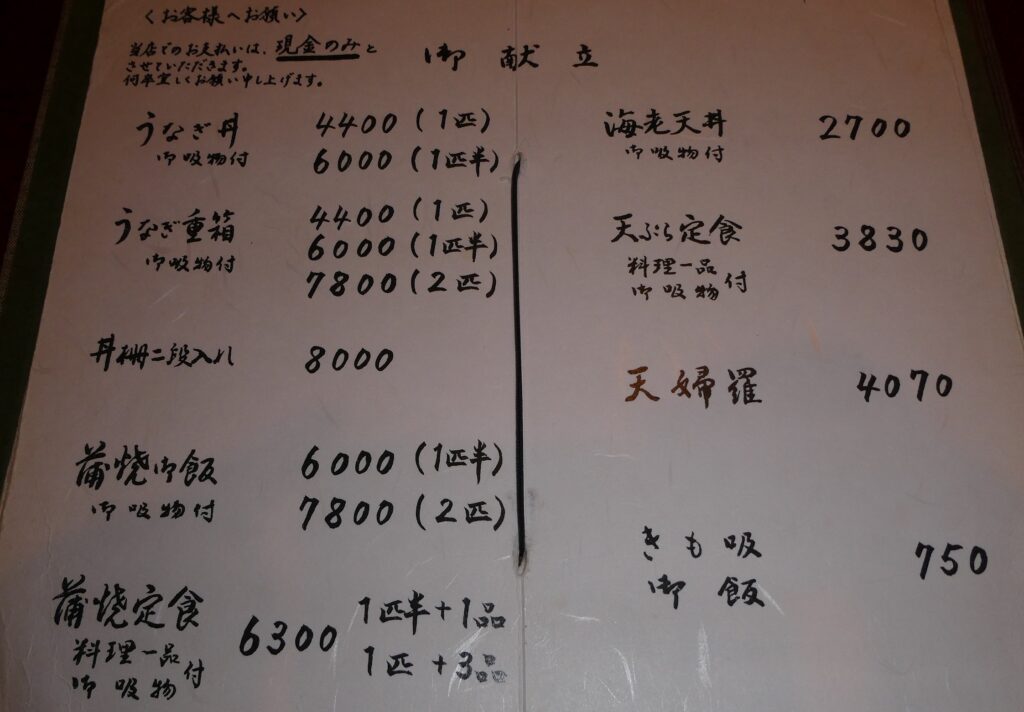 〈お客様へお願い〉
当店でのお支払いは、現金のみと
させていただきます。
何卒宜しくお願い申し上げます。
御献立
うなぎ丼 4400(1匹)
御吸物付 6000(1匹半)
うなぎ重箱 4400(1匹)
御吸物付 6000(1匹半)
7800(2匹)
丼柵二段入れ 8000
蒲焼御飯 6000(1匹半)
御吸物付 7800(2匹)
蒲焼定食 6300 1匹半+1品
料理一品 1匹+3品
御吸物付
海老天丼 2700
御吸物付
天ぷら定食 3830
料理一品
御吸物付
天婦羅 4070
きも吸 750
御飯